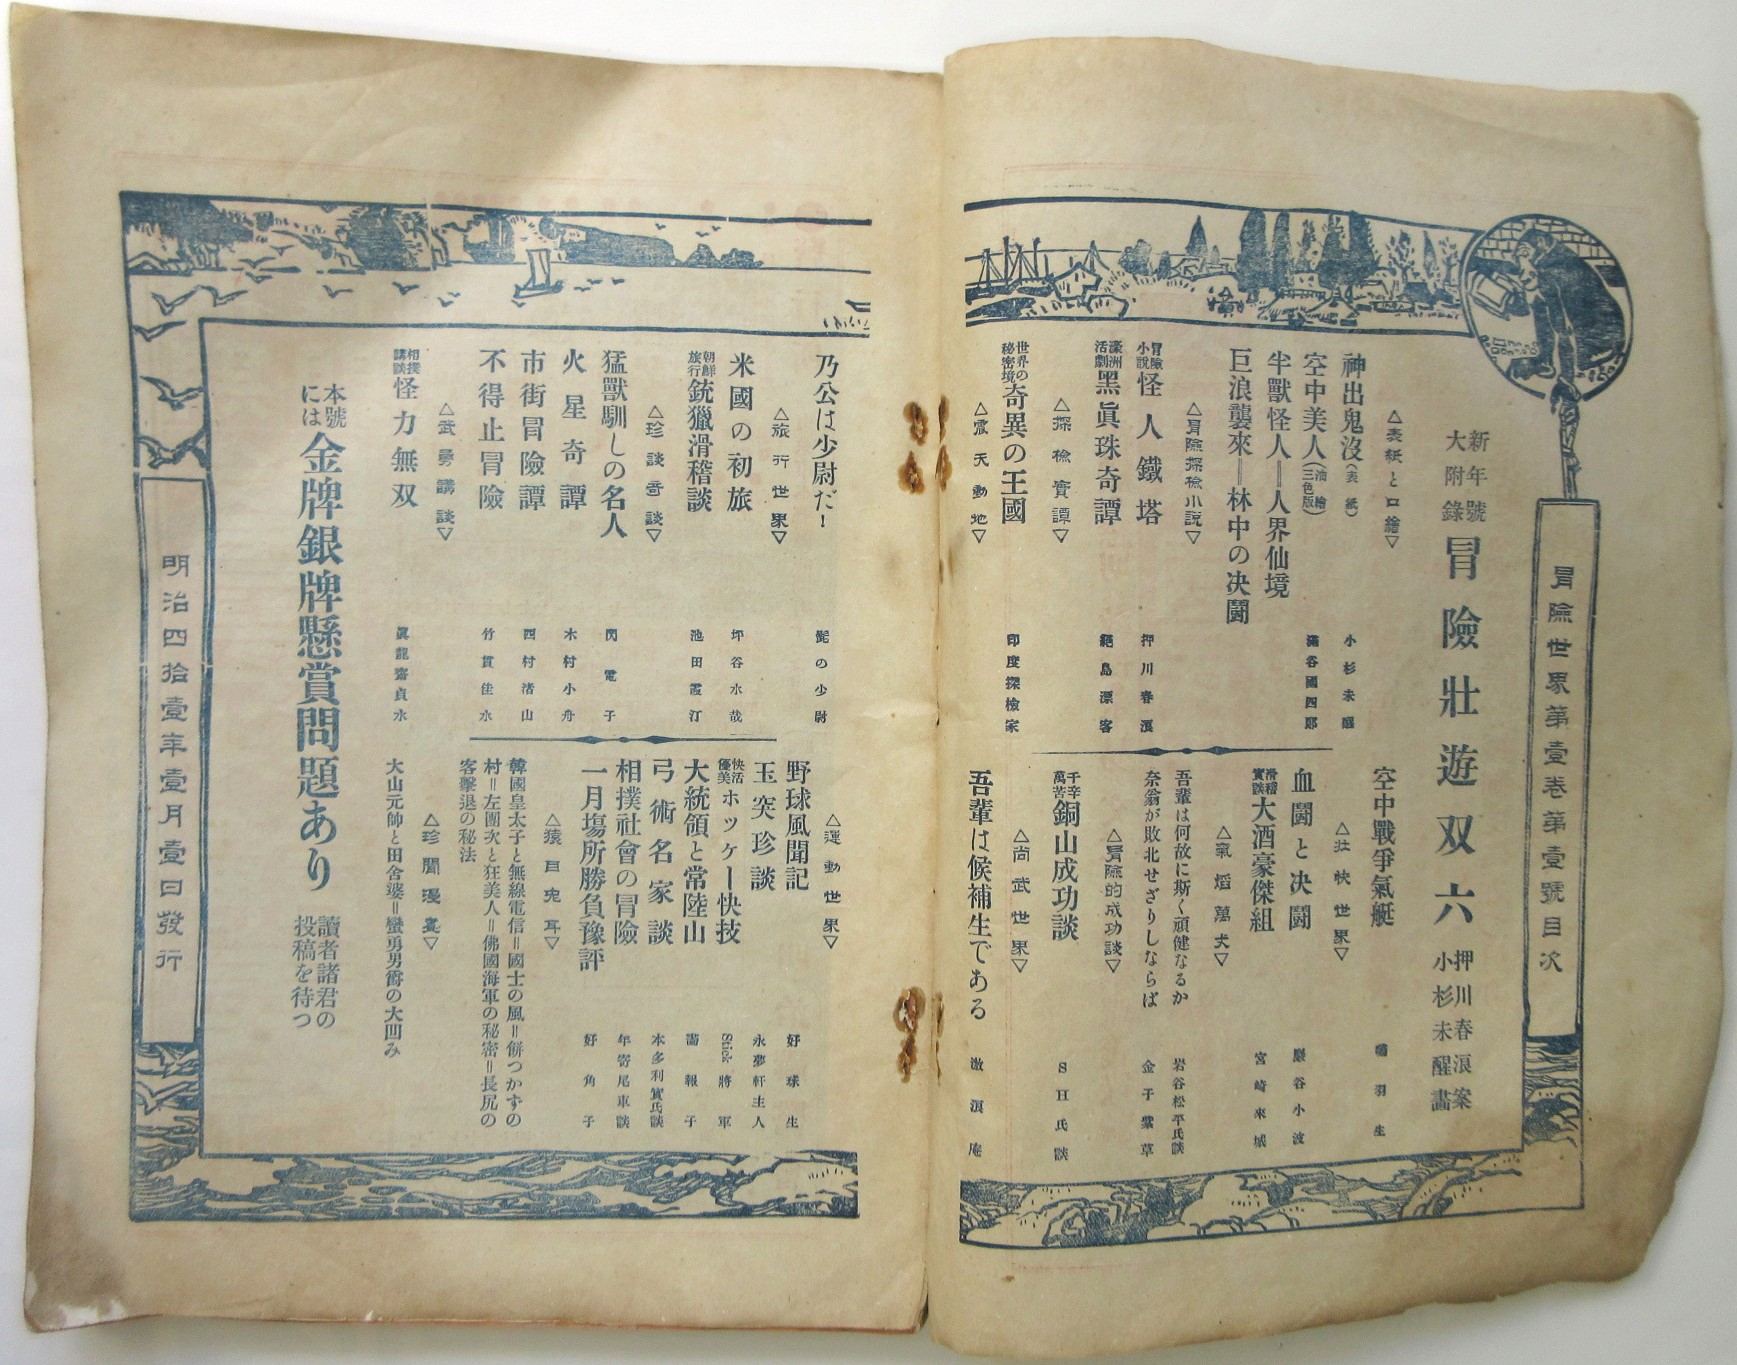 冒險世界第壹卷第壹號目次
新年號大附錄 冒險壯遊双六 押川春浪案 小杉未醒畵
△表紙と口繪▽
神出鬼沒(表紙) 小杉未醒
空中美人(油繪三色版) 滿谷國四郎
半獸怪人=人界仙境
巨浪襲來=林中の決鬪
△冒險探檢小說▽
冒險小說 怪人鐵塔 押川春浪
濠洲活劇 黑眞珠奇譚 絕島漂客
△探檢實譚▽
世界の秘密境 奇異の王國 印度探檢家
△震天動地▽
空中戰爭氣艇 羽生
△壯快世界▽
血鬪と決鬪 巖谷小波
滑稽實談 大酒豪傑組 宮崎來城
△氣焰萬丈▽
吾輩は何故に斯く頑健なるか 岩谷松平氏談
奈翁が敗北せざりしならば 金子紫草
△冒險的成功談▽
千辛萬苦 銅山成功談 SH氏談
△尙武世界▽
吾輩は候補生である 激浪庵
乃公は少尉だ! 髭の少尉
△旅行世界▽
米國の初旅 坪谷水哉
朝鮮旅行 銃獵滑稽談 池田霞汀
△珍談奇談▽
猛獸馴しの名人 閃電子
火星奇譚 木村小舟
市街冒險譚 四村渚山
不得止冒險 竹貫佳水
△武勇講談▽
相撲講談 怪力無双 眞龍齋貞水
△運動世界▽
野球風聞記 好球生
玉突珍談 永夢軒主人
快活優美 ホツケー快技 Stick將軍
大統領と常陸山 滿報子
弓術名家談 本多利實氏談
相撲社會の冒險 年寄尾車談
一月塲所勝負豫評 好角子
△猿目兎耳▽
韓國皇太子と無線電信=國士の風=餠つかずの
村=左團次と狂美人=佛國海軍の秘密=長尻の
客擊退の秘法
△珍聞漫畫▽
大山元帥と田舍婆=蠻勇勇爵の大凹み
本號には 金牌銀牌懸賞問題あり 讀者諸君の投稿を待つ
明治四拾壹年壹月壹日發行